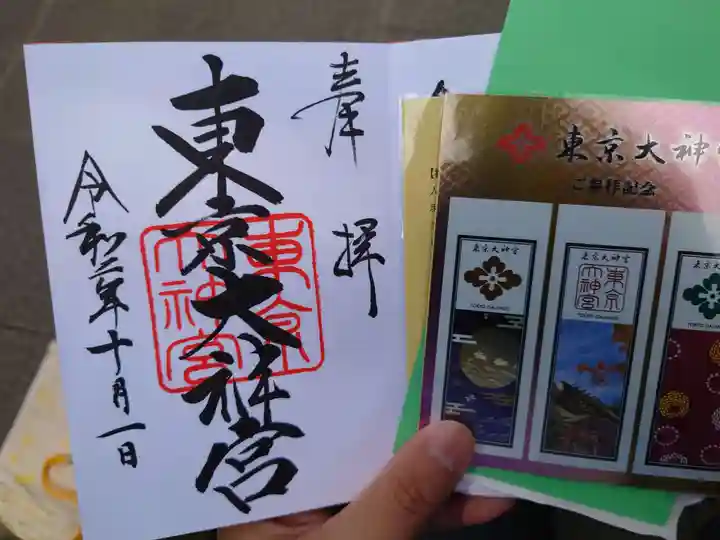 奉拝
東京大神宮
東京大神宮
令和二年十月一日
東京大神
ご参拝記念
東京大神宮
TOKYO DAIJINGU
東京大神宮
東京大神宮
TOKYO DAIJINGU
東京大神宮
TOKYO DAIJINGU